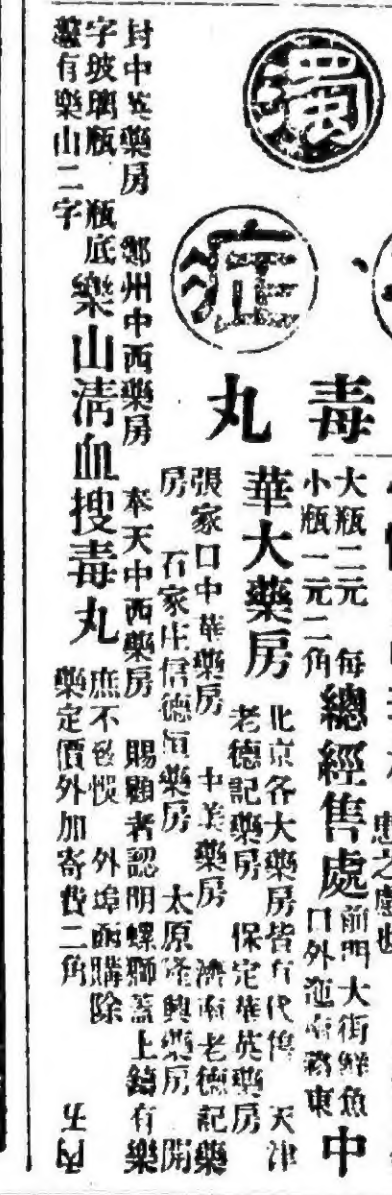 濁
淋
毒
丸
大瓶二元 每
小瓶一元二角
總經售處
前門大街鮮魚
口外迤南路東
中
華大藥房
北京各大藥房皆有代售 天津
老德記藥房 保定華英藥房
張家口中華藥房 中美藥房 濟南老德記藥
房 石家庄信德恒藥房 太原隆興藥房 開
封中英藥房 鄭州中西藥房 奉天中西藥房 賜顧者認明螺螄蓋上鑄有樂
字玻璃瓶 瓶底
有樂山二字
樂山清血搜毒丸
庶不致悞 外埠函購除
藥定價外加寄費二角
丙五